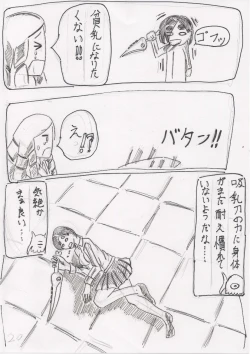 ゴフッ
貧乳になりた
くない!!
え!?
バタン!!
吸乳刀の力に身体
がまだ耐え慣れて
いないようだな…
気絶か
まあ良い…
20